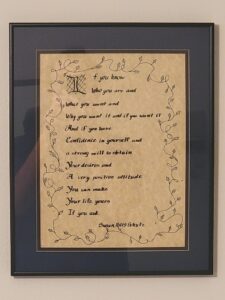 If you know
Who you are and
What you want and
Why you want it and if you want it
And if you have
Confidence in yourself and
a strong will to obtain
Your desires and
A very positive attitude
You can make
Your life yours
If you ask.
Susan Polis